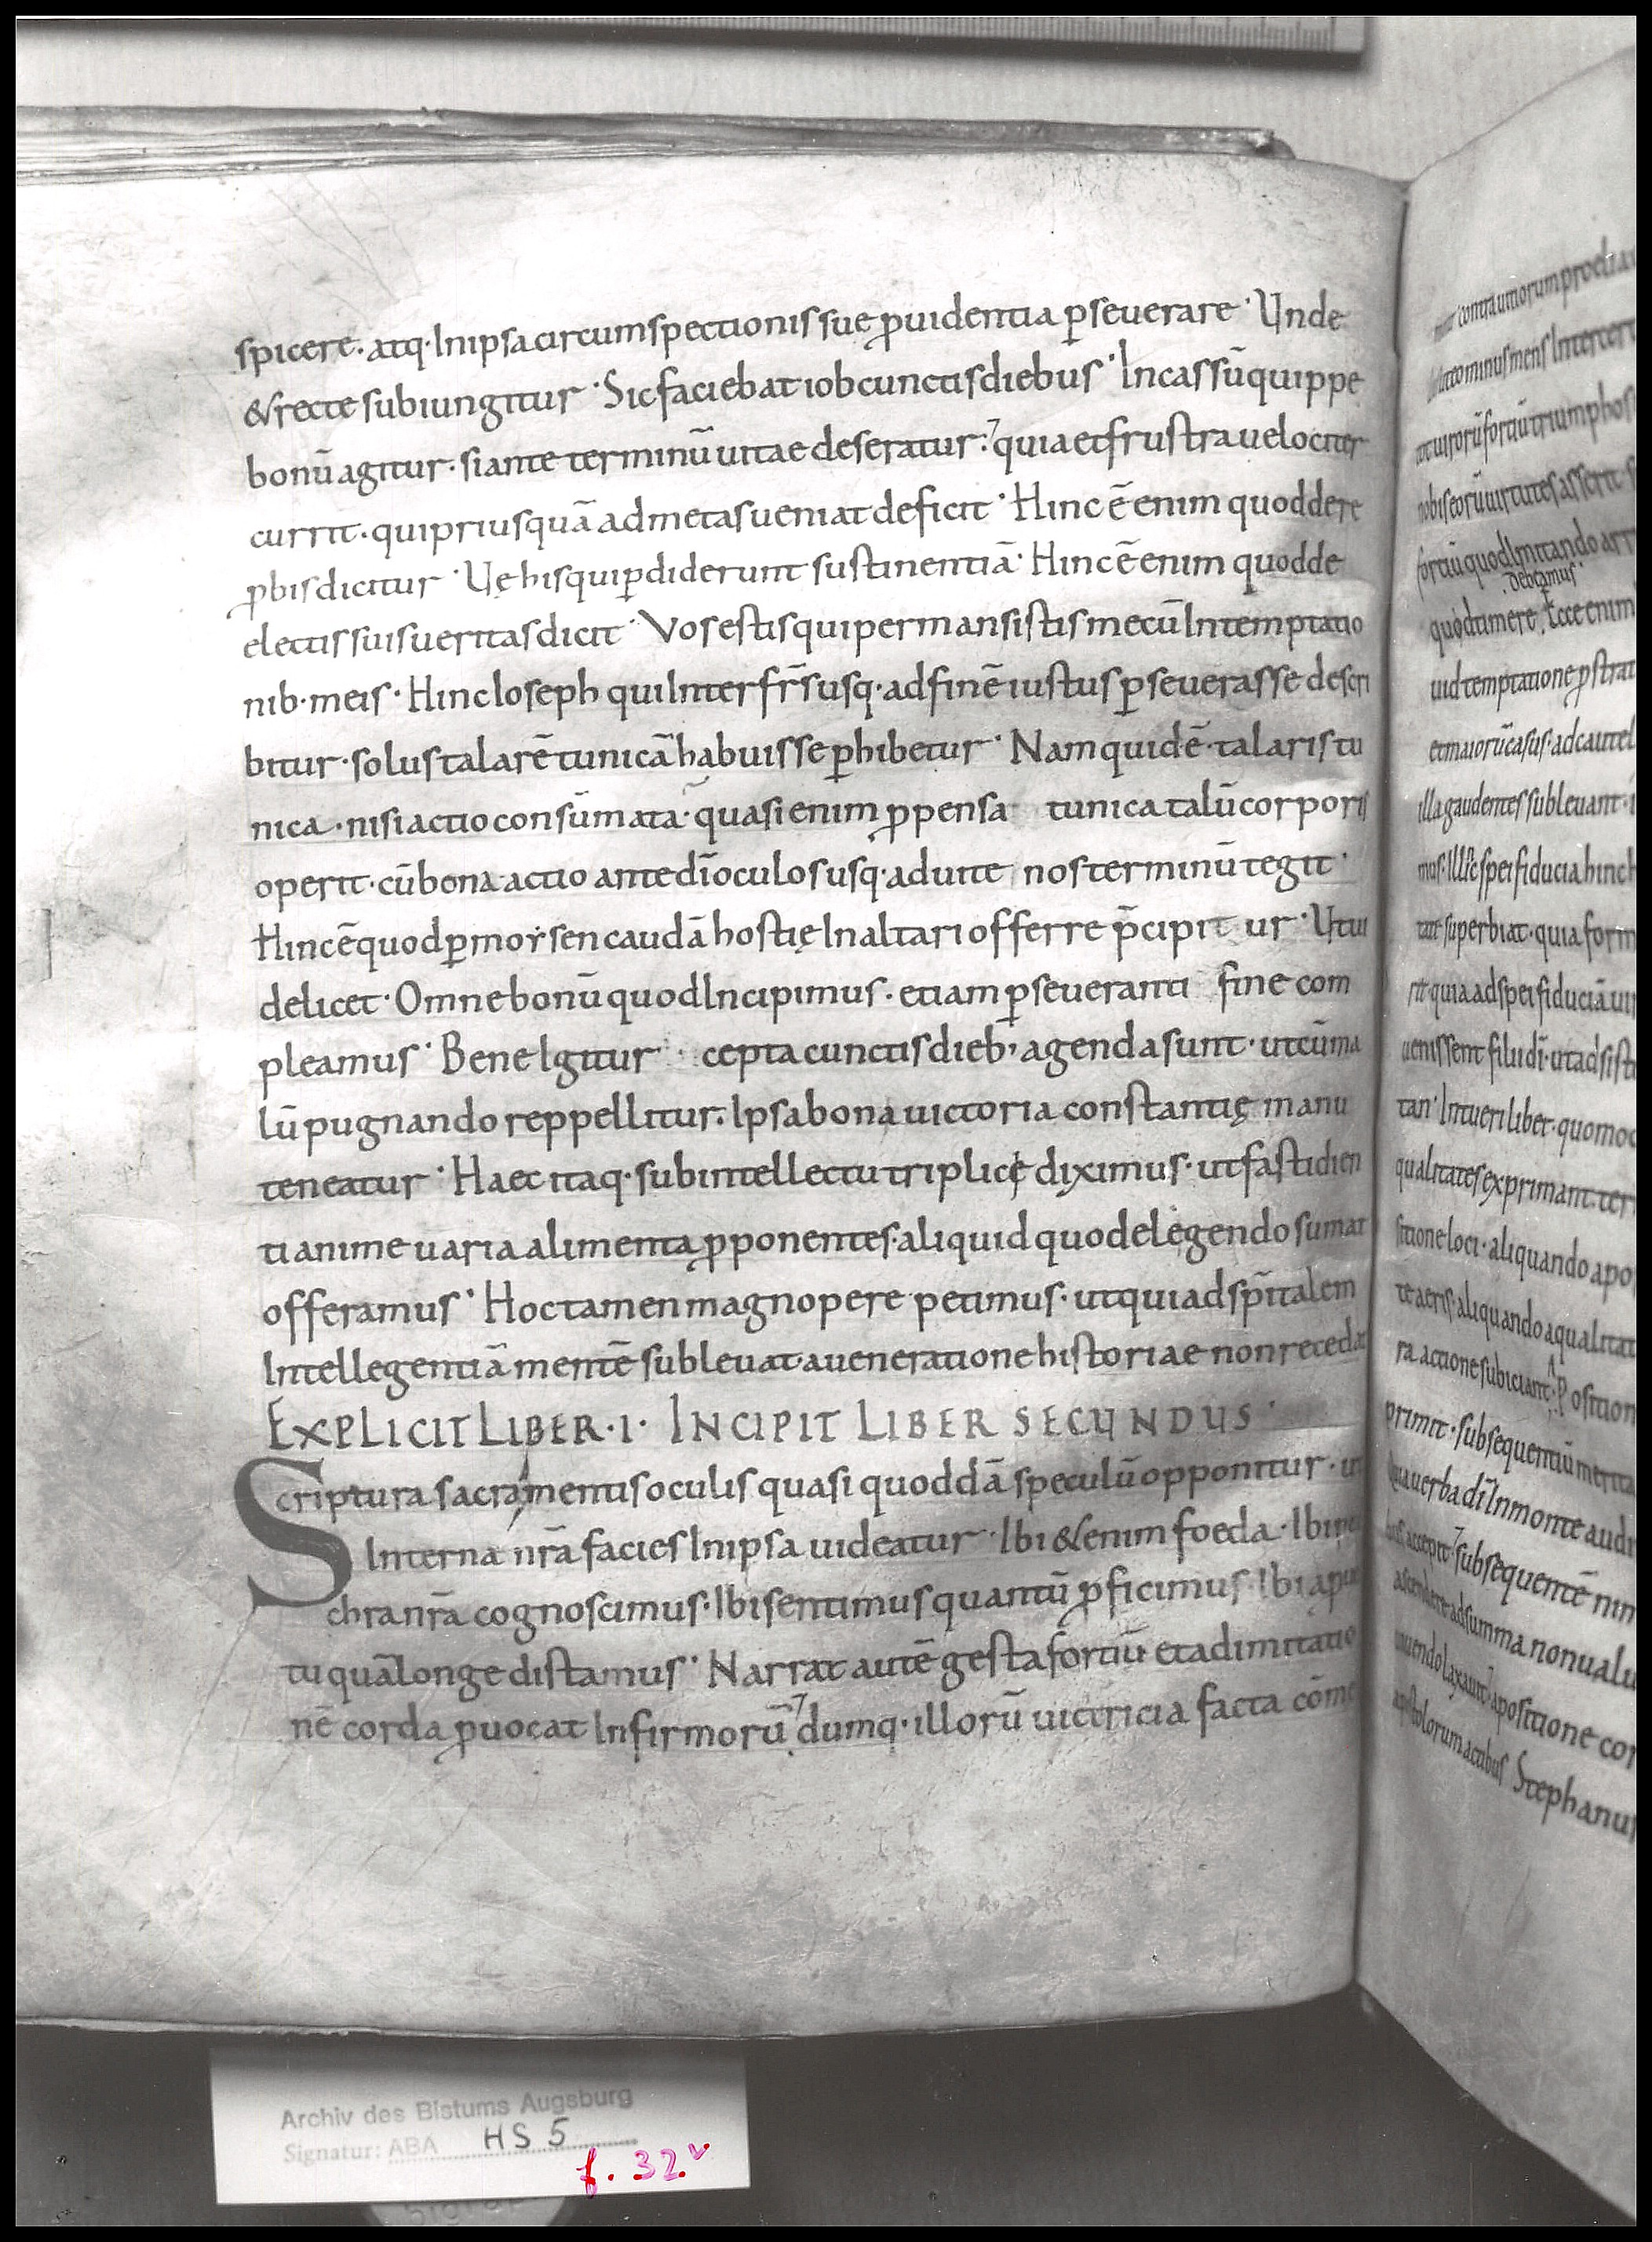 spicere· atq· In ipsa circumspectionis sue ꝓuidentia ꝑseuerare· Unde
& recte subiungitur· Sic faciebat iob cunctis diebus· Incassū quippe
bonū agitur· si ante terminū uitae deseratur· quia et frustra uelociter
currit· qui priusquā ad metas ueniat deficit· Hinc ē enim quod de re
ꝓbis dicitur· Uę his qui ꝑdiderunt sustinentiā· Hinc ē enim quod de
electis suis ueritas dicit· Vos estis qui permansistis mecū In temptatio
nib· meis· Hinc Ioseph qui Inter fr̄s usq· ad finē iustus ꝑseuerasse descri
bitur· solus talarē tunicā habuisse ꝑhibetur· Nam quid ē· talaris tu
nica· nisi actio consūmata· quasi enim ꝓpensa tunica talū corporis
operit· cū bona actio ante dī oculos usq· ad uite nos terminū tegit·
Hinc ē quod ꝑ moysen caudā hostię In altari offerre p̄cipitur· Ut ui
delicet· Omne bonū quod Incipimus· etiam ꝑseueranti fine com
pleamus· Bene Igitur cepta cunctis dieb; agenda sunt· ut cū ma
lū pugnando reppellitur· Ipsa bona uictoria constantię manu
teneatur· Haec itaq· sub intellectu triplicę diximus· ut fastidien
ti anime uaria alimenta ꝓponentes· aliquid quod elegendo sumat
offeramus· Hoc tamen magnopere petimus· ut qui ad sp̄italem
Intellegentiā mentē subleuat· a ueneratione historiae non recedat
EXPLICIT LIBER·I· INCIPIT LIBER SECUNDUS·
Scriptura sacra mentis oculis quasi quoddā speculū opponitur· ut
Interna nr̄a facies In ipsa uideatur· Ibi &enim foeda· Ibi pul
chra nr̄a cognoscimus· Ibi sentimus quantū ꝓficimus· Ibi a ꝓfec
tu quā longe distamus· Narrat autē gesta fortiū et ad imitatio
nē corda ꝓuocat Infirmorū dumq· illorū uictricia facta cōme
contra uitiorum proelia
minus mens Inter cert
fortiū triumphos
nobis eorū uirtutes asserit·
fortiū quod Imitando arr
debeamus·
quod timere· Ecce enim
uid temptatione ꝓstrat
et maiorū casus· ad cautel
illa gaudentes subleuant·
mus· Illic spei fiducia hinc h
superbiat· quia form
rit· quia ad spei fiduciā
uenissent filii dī· ut adsist
tan· Intueri liber· quomod
qualitates exprimant· ter
sitione loci· aliquando a po
te aeris· aliquando a qualitat
ra actione subiciant· Position
primit· subsequentiū merita
Qua uerba dī In monte audi
accepit· subsequentē nin
ascendere ad summa non ualu
a positione cor
apostolorum actibus Stephanus
Archiv des Bistums Augsburg
Signatur: ABA HS 5
f. 32.v